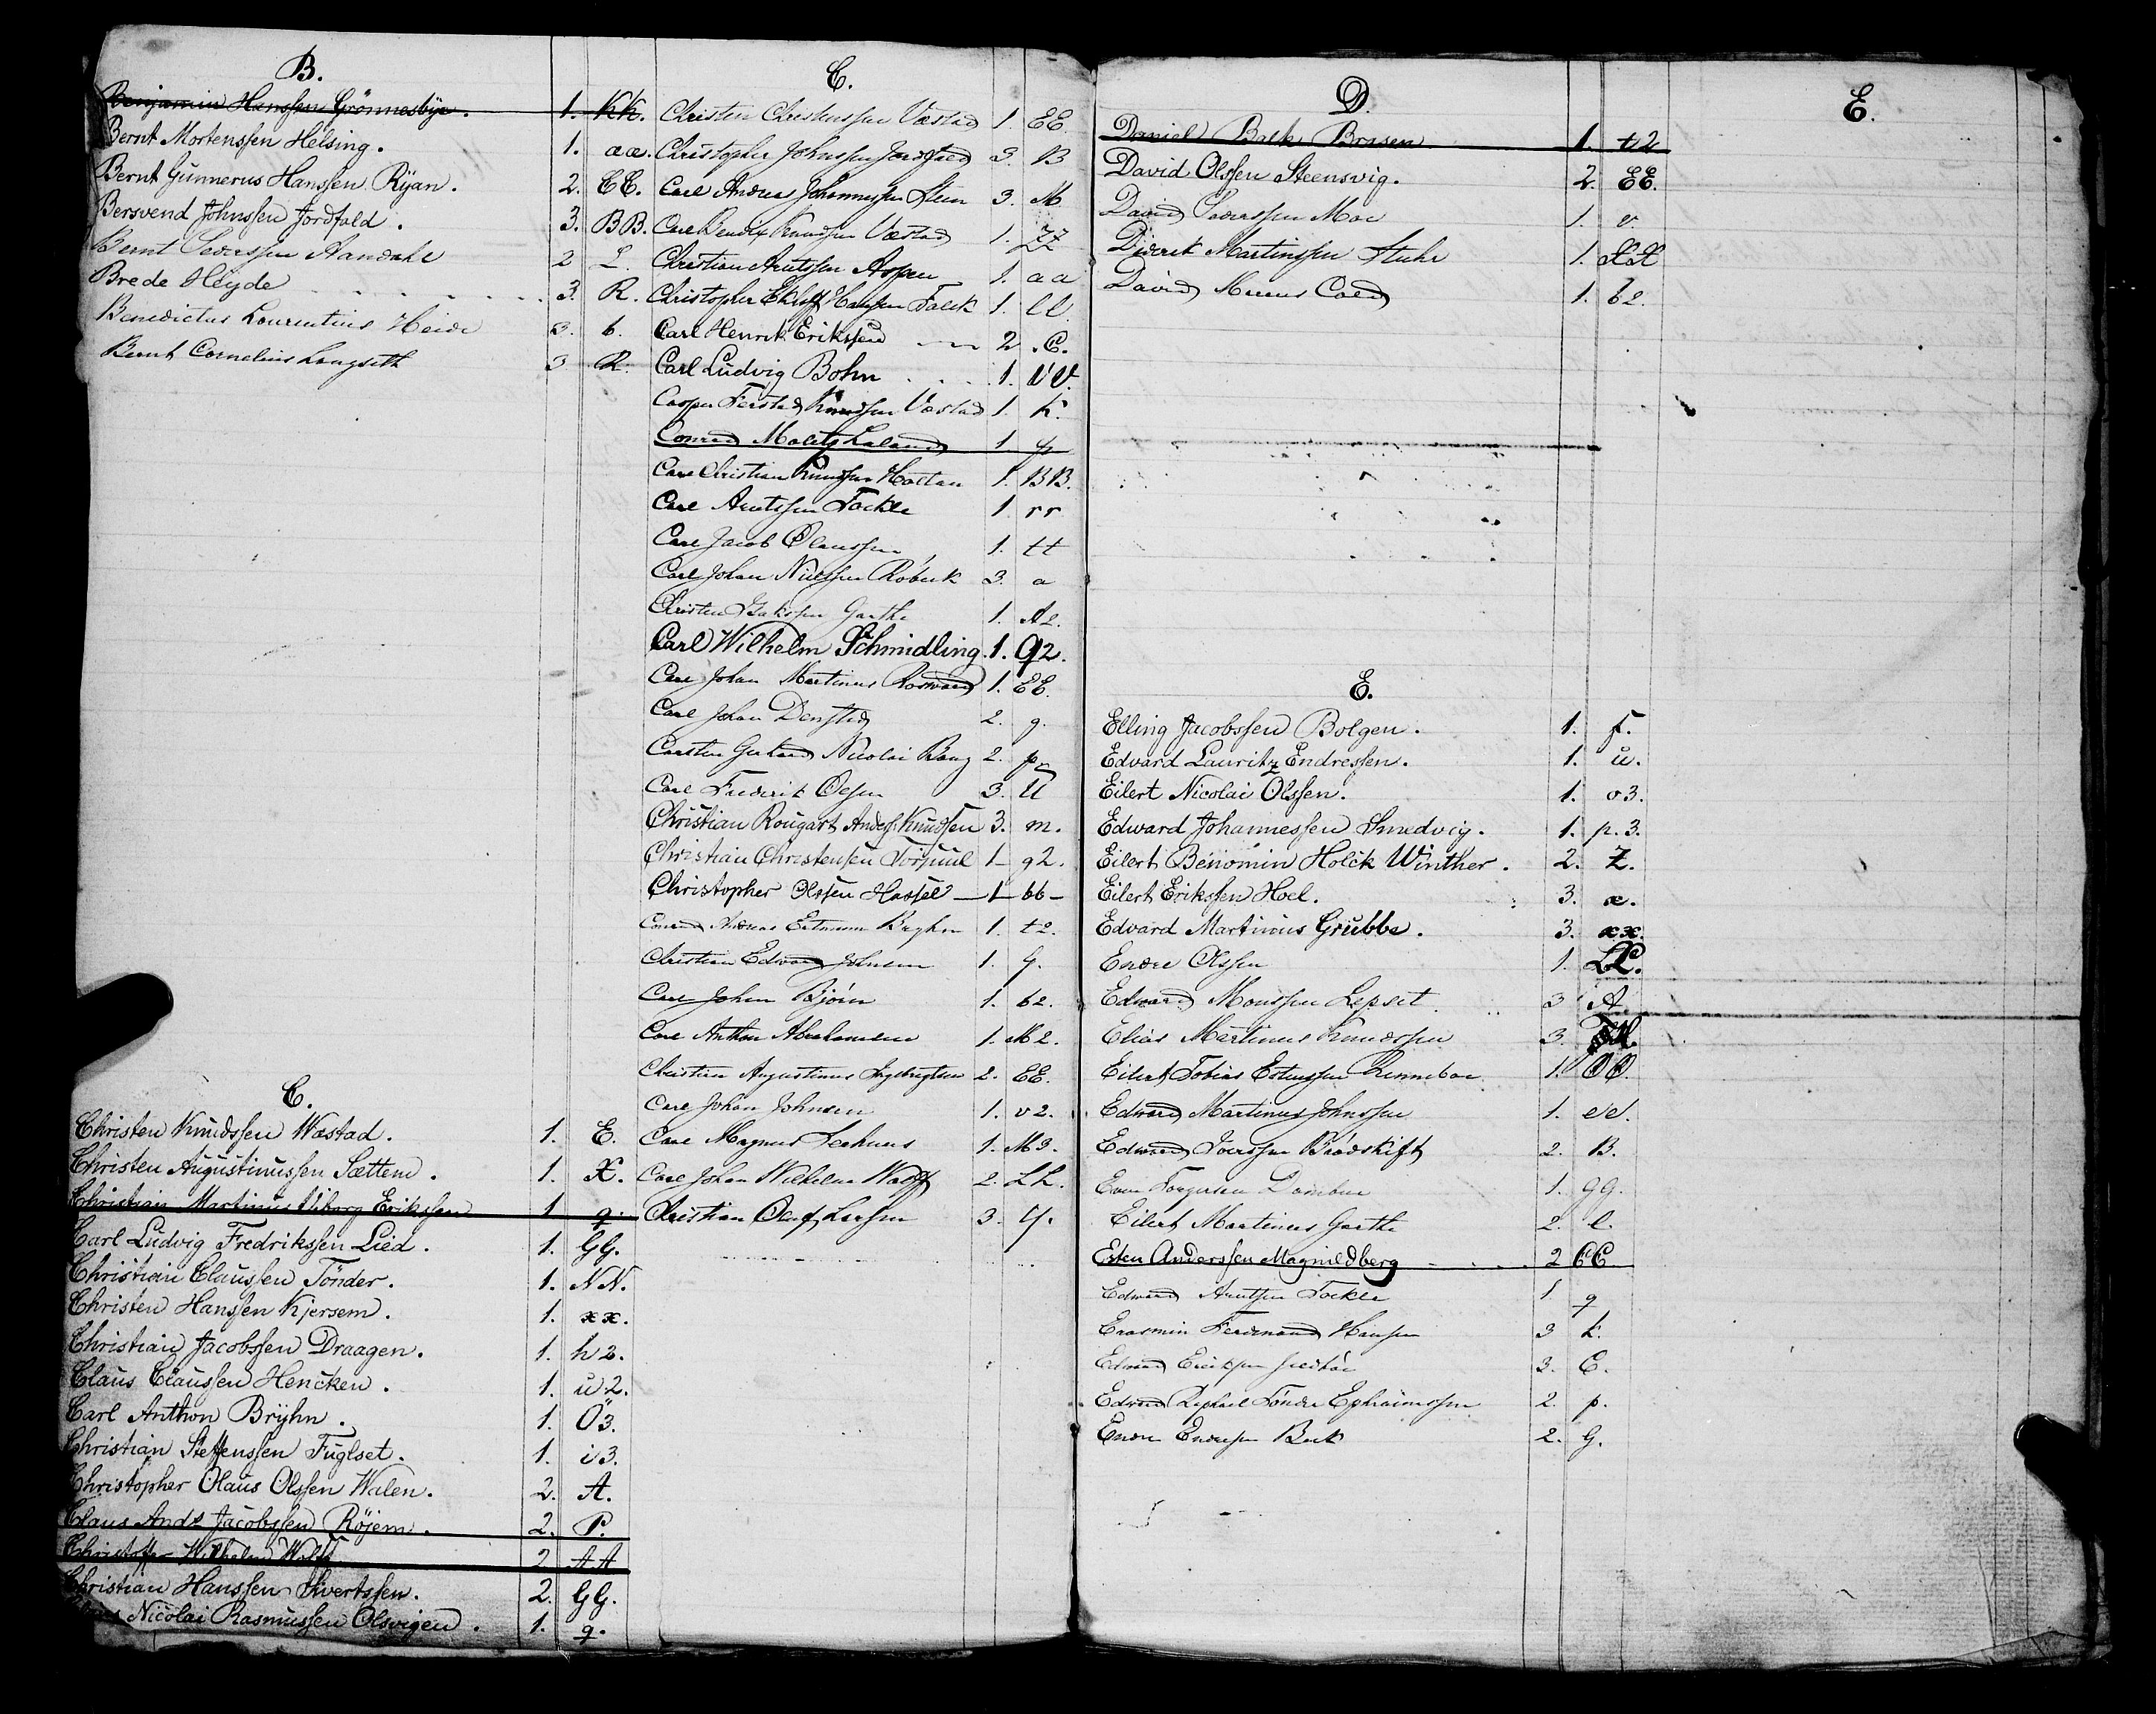 B.
Benjamin Hanssen Grönnesbye. 1. KK.
Bernt Mortenssen Helsing. 1. aa.
Bernt Gunnerus Hanssen Rÿan. 2. CC.
Bersvend Johnssen Jordfald. 3. BB.
Bernt Sivertssen Aandahl 2 L.
Brede Heyde 3. R.
Benedictus Laurentius Heide 3. b.
Bernt Cornelius Langseth 3 R.
C.
Christen Knudssen Wæstad. 1. E.
Christen Augustinussen Sættem. 1. X.
Christian Martinus Wiborg Erikssen 1 q.
Carl Ludvig Fredrikssen Lied. 1. GG.
Christian Claussen Tönder. 1. NN.
Christen Hanssen Kjersem. 1. xx.
Christian Jacobssen Draagen. 1. h2.
Claus Claussen Hencken. 1. u2.
Carl Anthon Brÿhn. 1. Ö3.
Christian Steffenssen Fuglset. 1. i3.
Christopher Olaus Olssen Walen. 2. A.
Claus Ands Jacobssen Röjem. 2. P.
Christoffer Wilhelm Wolff 2 AA
Christian Hanssen Sivertssen. 2. GG.
Nicolai Rasmussen Olsvigen. 1. q.
C.
Christen Christenssen Væstad 1. EE.
Christopher Johnssen Jordfald 3. B
Carl Andreas Johannessen Stein 3. M
Carl Bendix Knudssen Væstad 1. ZZ
Christian Arntssen Aspen 1. aa
Christopher Ekhoff Hanssen Falck 1. ll.
Carl Henrik Erikssen 2. C.
Carl Ludvig Bohn 1. VV.
Casper Ferstad Knudssen Væstad 1. k.
Conrad Moletz Leland 1 y
Carl Christian Knudssen Holtan 1. BB.
Carl Arntssen Fockle 1 rr
Carl Jacob Olaussen 1. tt
Carl Johan Nielssen Röbeck 3. a
Christen Isakssen Garthe 1. A2.
Carl Wilhelm Schmidling. 1. Q2.
Carl Johan Martinus Rosvold 1. EE.
Carl Johan Denstad 2. g.
Carsten Gerhard Nicolai Bang 2. p
Carl Frederik Olsen 3. U
Christian Rougart Anderss. Knudssen 3. m.
Christian Christensen Torjuul 1 g2.
Christopher Olssen Hassel 1 bb
Conrad Andreas Brÿhn 1. t2.
Christian Edward Johnsen 1. G.
Carl Johan Bjórn 1. b2.
Carl Anthon Abrahamsen 1. M2.
Christian Augustinus Ingebrigtsen 2. EE.
Carl Johan Johnsen 1. v2.
Carl Magnus 1. M3.
Carl Johan Wilhelm Wolff 2. LL.
Christian Oluf Larsen 3. Y.
D.
Daniel Balk Brasen 1. t2
David Olssen Steensvig. 2. EE.
David Moe 1. v.
Diderik Martinssen Stuhr 1. XX
David Cold 1. b2.
E.
Elling Jacobssen Bolgen. 1. f.
Edvard Lauritz Endressen. 1. u.
Eilert Nicolai Olssen. 1. o3.
Edward Johannessen Smedvig. 1. p.3.
Eilert Benomin Holck Winther. 2. Z.
Eilert Erikssen Hoel. 3. æ.
Edvard Martinus Grubbe. 3. xx.
Endre Olssen 1. LL.
Edward Monssen Lepset 3 A
Elias Martinus Knudssen 3.
Eilert Tobias Estenssen Renneboe 1. OO.
Edward Martinus Johnssen 1. ee.
Edward Iverssen Brödskift 2. B.
Even Torgersen Dombue 1. GG.
Eilert Martinus Garthe 2. l.
Esten Anderssen Magnildberg 2 CC
Edward Arntssen Fockle 1 q
Erasmin Ferdinand Hansen 3 k.
Edward Erikssen 3. C.
Edward Raphael Tönder Ephraimssen 2. p.
Endre Endresen Bech 2. G.
E.